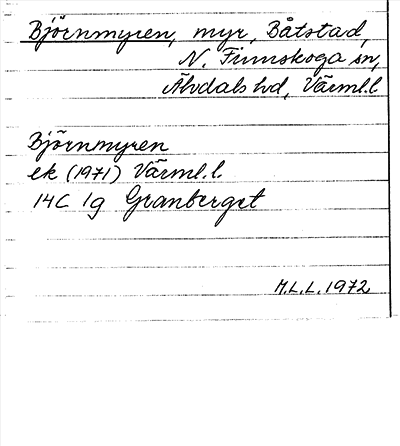 Björnmyren, myr, Båtstad,
N. Finnskoga sn,
Älvdals hd, Värml.l.
Björnmyren
ek (1971) Värml.l.
14C 1g Granberget
M.L.L. 1972